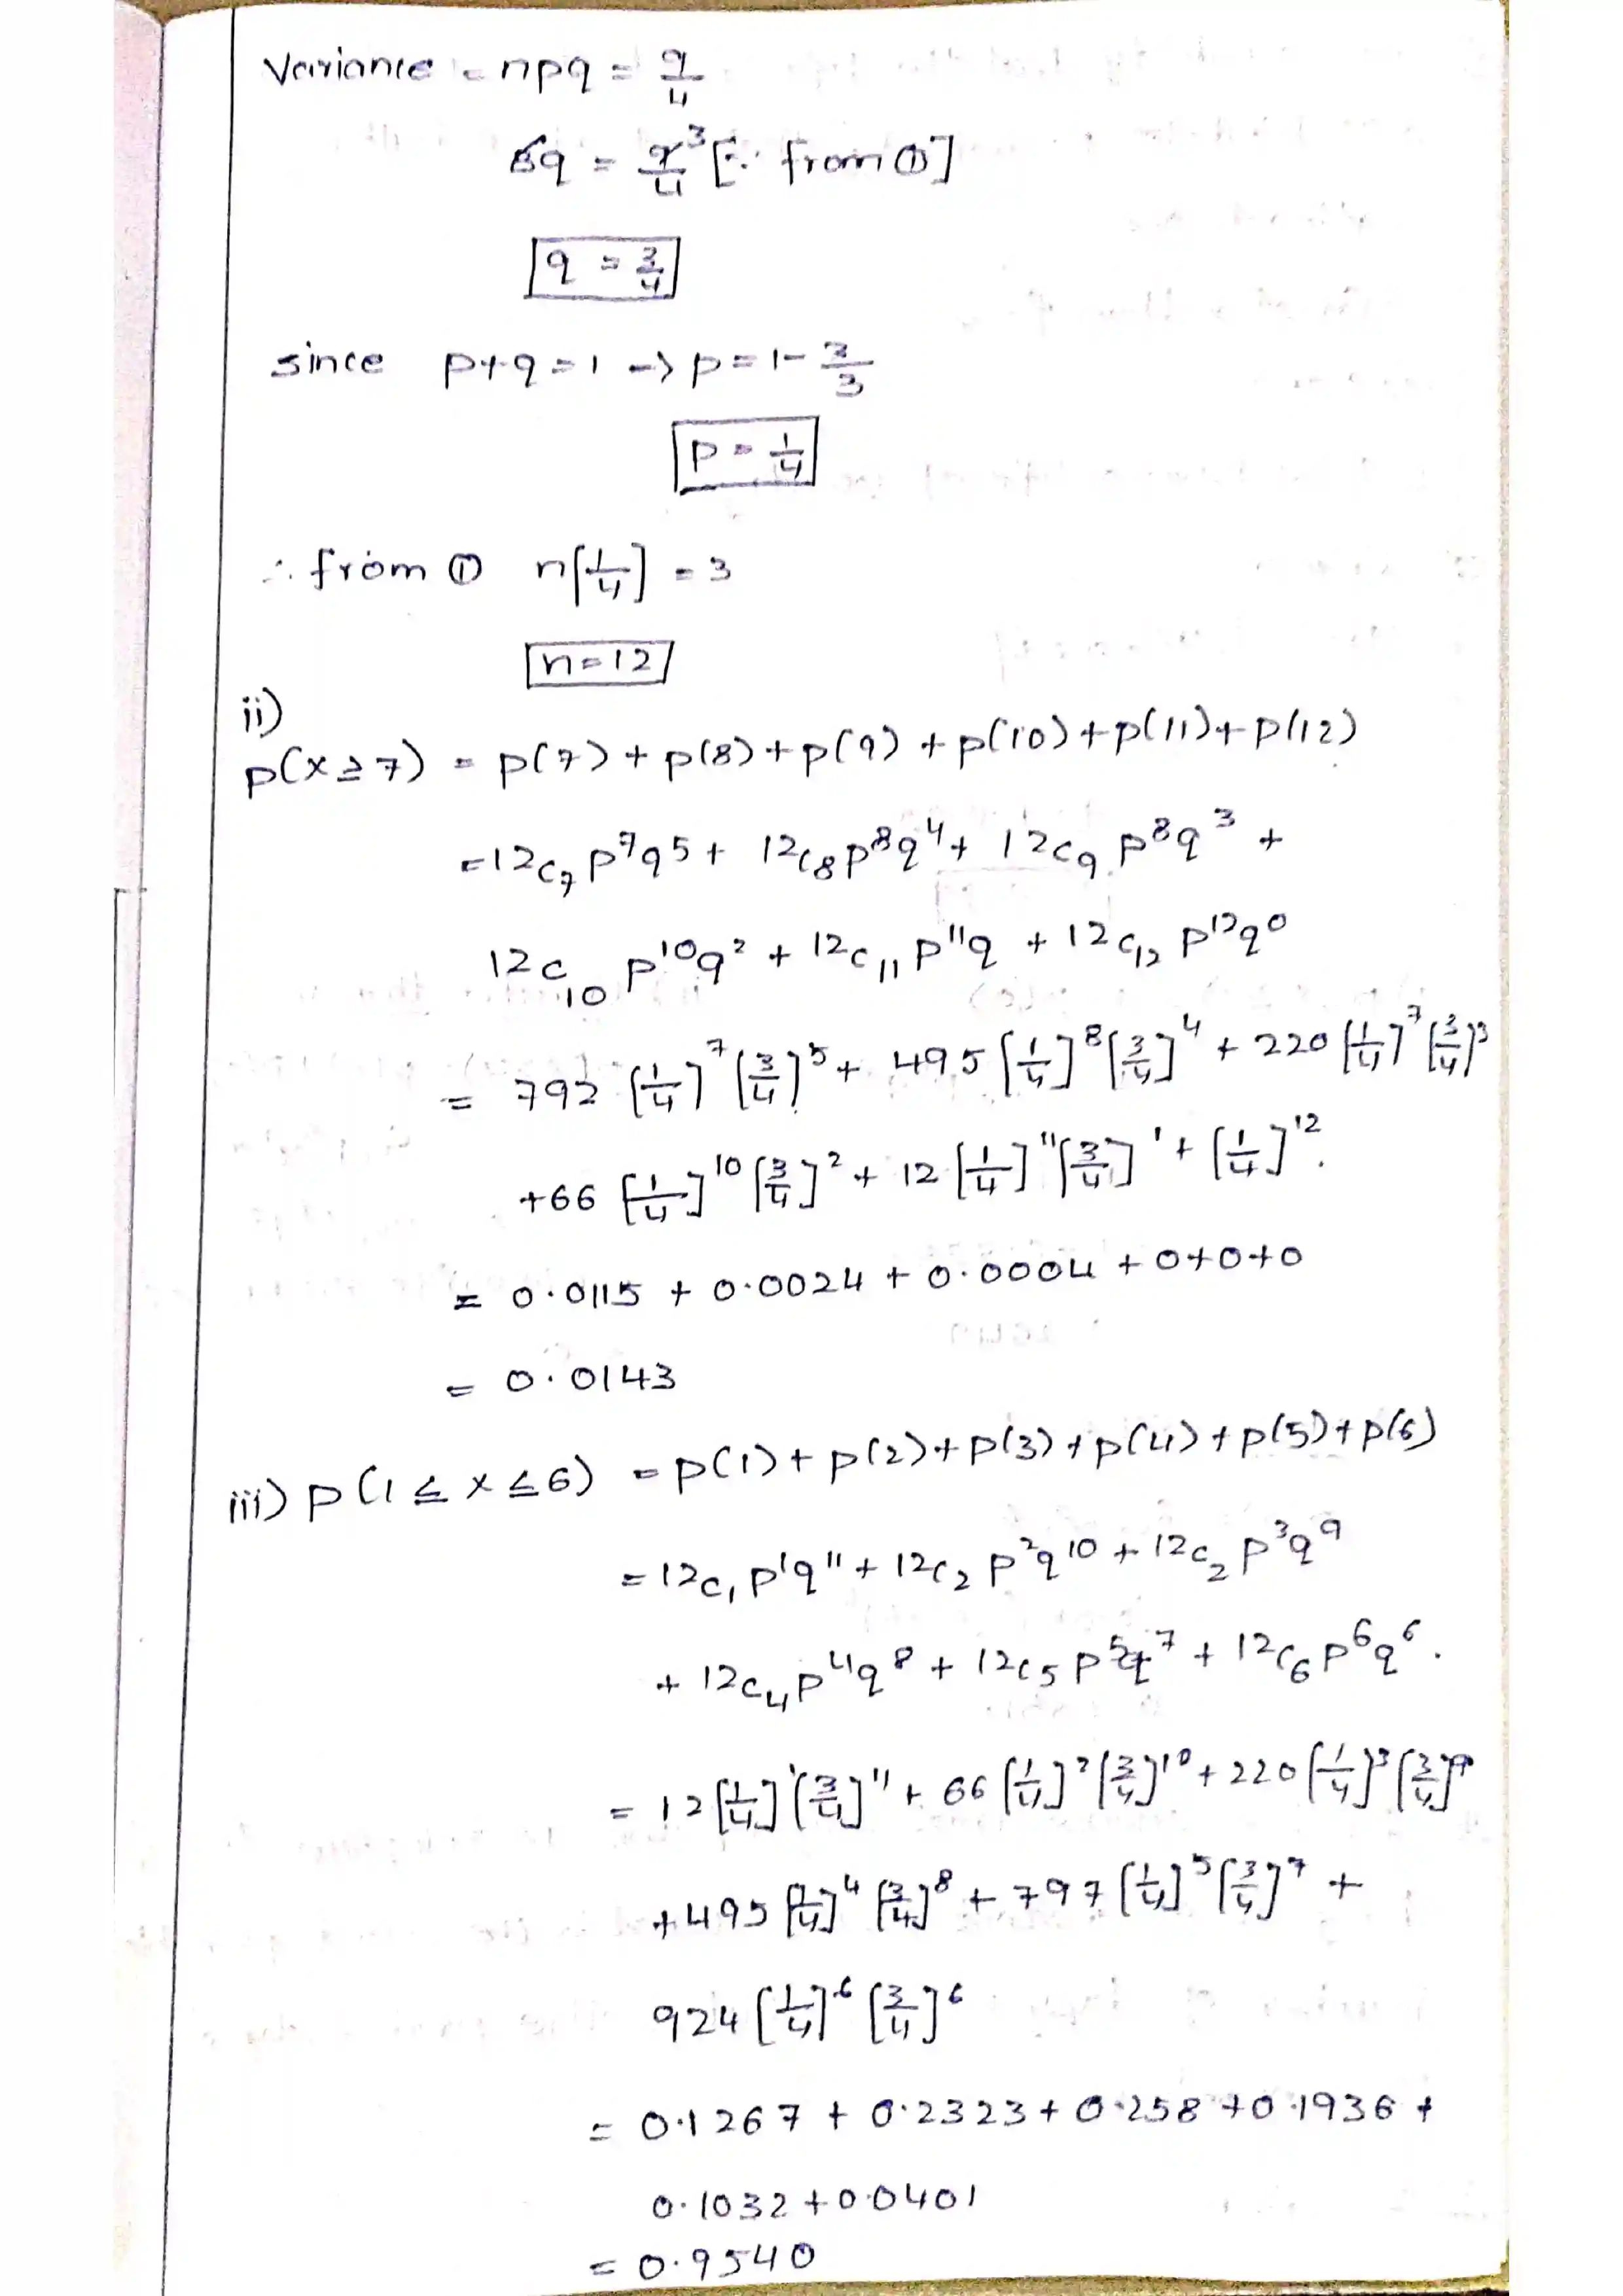 Variance = npq = 9/4
3q = 9/4 ³ [∵ from ①]
q = 3/4
since p+q=1 -> p=1-3/3
p = 1/4
∴ from ① n[1/4] = 3
n=12
ii)
p(x≥7) = p(7)+p(8)+p(9)+p(10)+p(11)+p(12)
=12c₇ p⁷q⁵ + 12c₈p⁸q⁴ + 12c₉ p⁸q³ +
12c₁₀ p¹⁰q² + 12c₁₁ p¹¹q + 12c₁₂ p¹²q⁰
= 792 [1/4]⁷ [3/4]⁵ + 495 [1/4]⁸ [3/4]⁴ + 220 [1/4]⁷ [3/4]³
+66 [1/4]¹⁰ [3/4]² + 12 [1/4]¹¹ [3/4]¹ + [1/4]¹².
= 0.0115 + 0.0024 + 0.0004 + 0+0+0
= 0.0143
iii) p(1≤x≤6) = p(1)+p(2)+p(3)+p(4)+p(5)+p(6)
=12c₁ p¹q¹¹ + 12c₂ p²q¹⁰ + 12c₂ p³q⁹
+ 12c₄p⁴q⁸ + 12c₅ p⁵q⁷ + 12c₆ p⁶q⁶.
= 12[1/4]¹[3/4]¹¹ + 66 [1/4]²[3/4]¹⁰ + 220 [1/4]³[3/4]⁹
+495 [1/4]⁴ [3/4]⁸ + 797 [1/4]⁵ [3/4]⁷ +
924 [1/4]⁶ [3/4]⁶
= 0.1267 + 0.2323 + 0.258 + 0.1936 +
0.1032 + 0.0401
= 0.9540